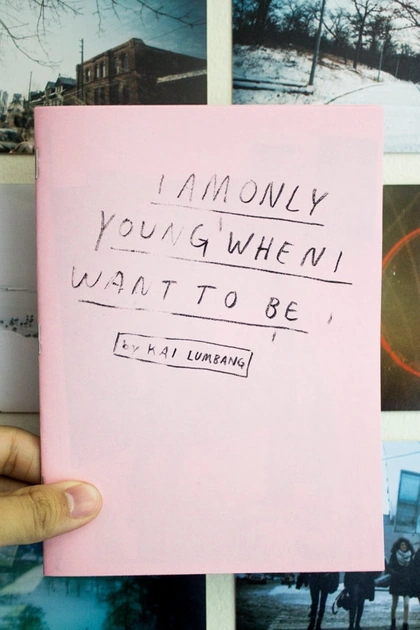 I AM ONLY
YOUNG WHEN I
WANT TO BE
by KAI LUMBANG